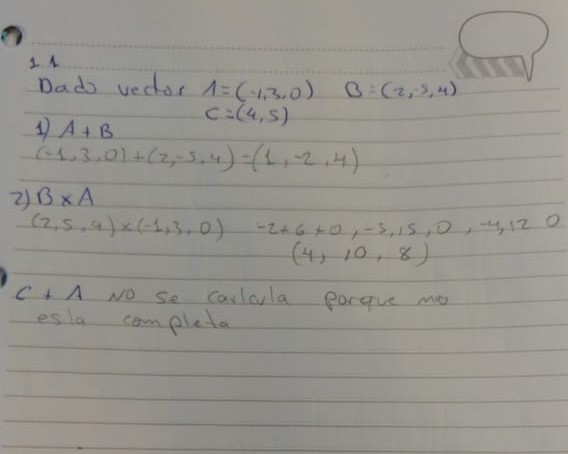 1 1
Dado vector A=(-1,3,0) B=(2,-5,4)
C=(4,5)
1) A+B
(-1,3,0)+(2,-5,4)=(1,-2,4)
2) B x A
(2,5,4)x(-1,3,0) -2+6+0, -5,15,0, -4,12 0
(4, 10, 8)
C + A NO se carlcula porque mo
esla completa